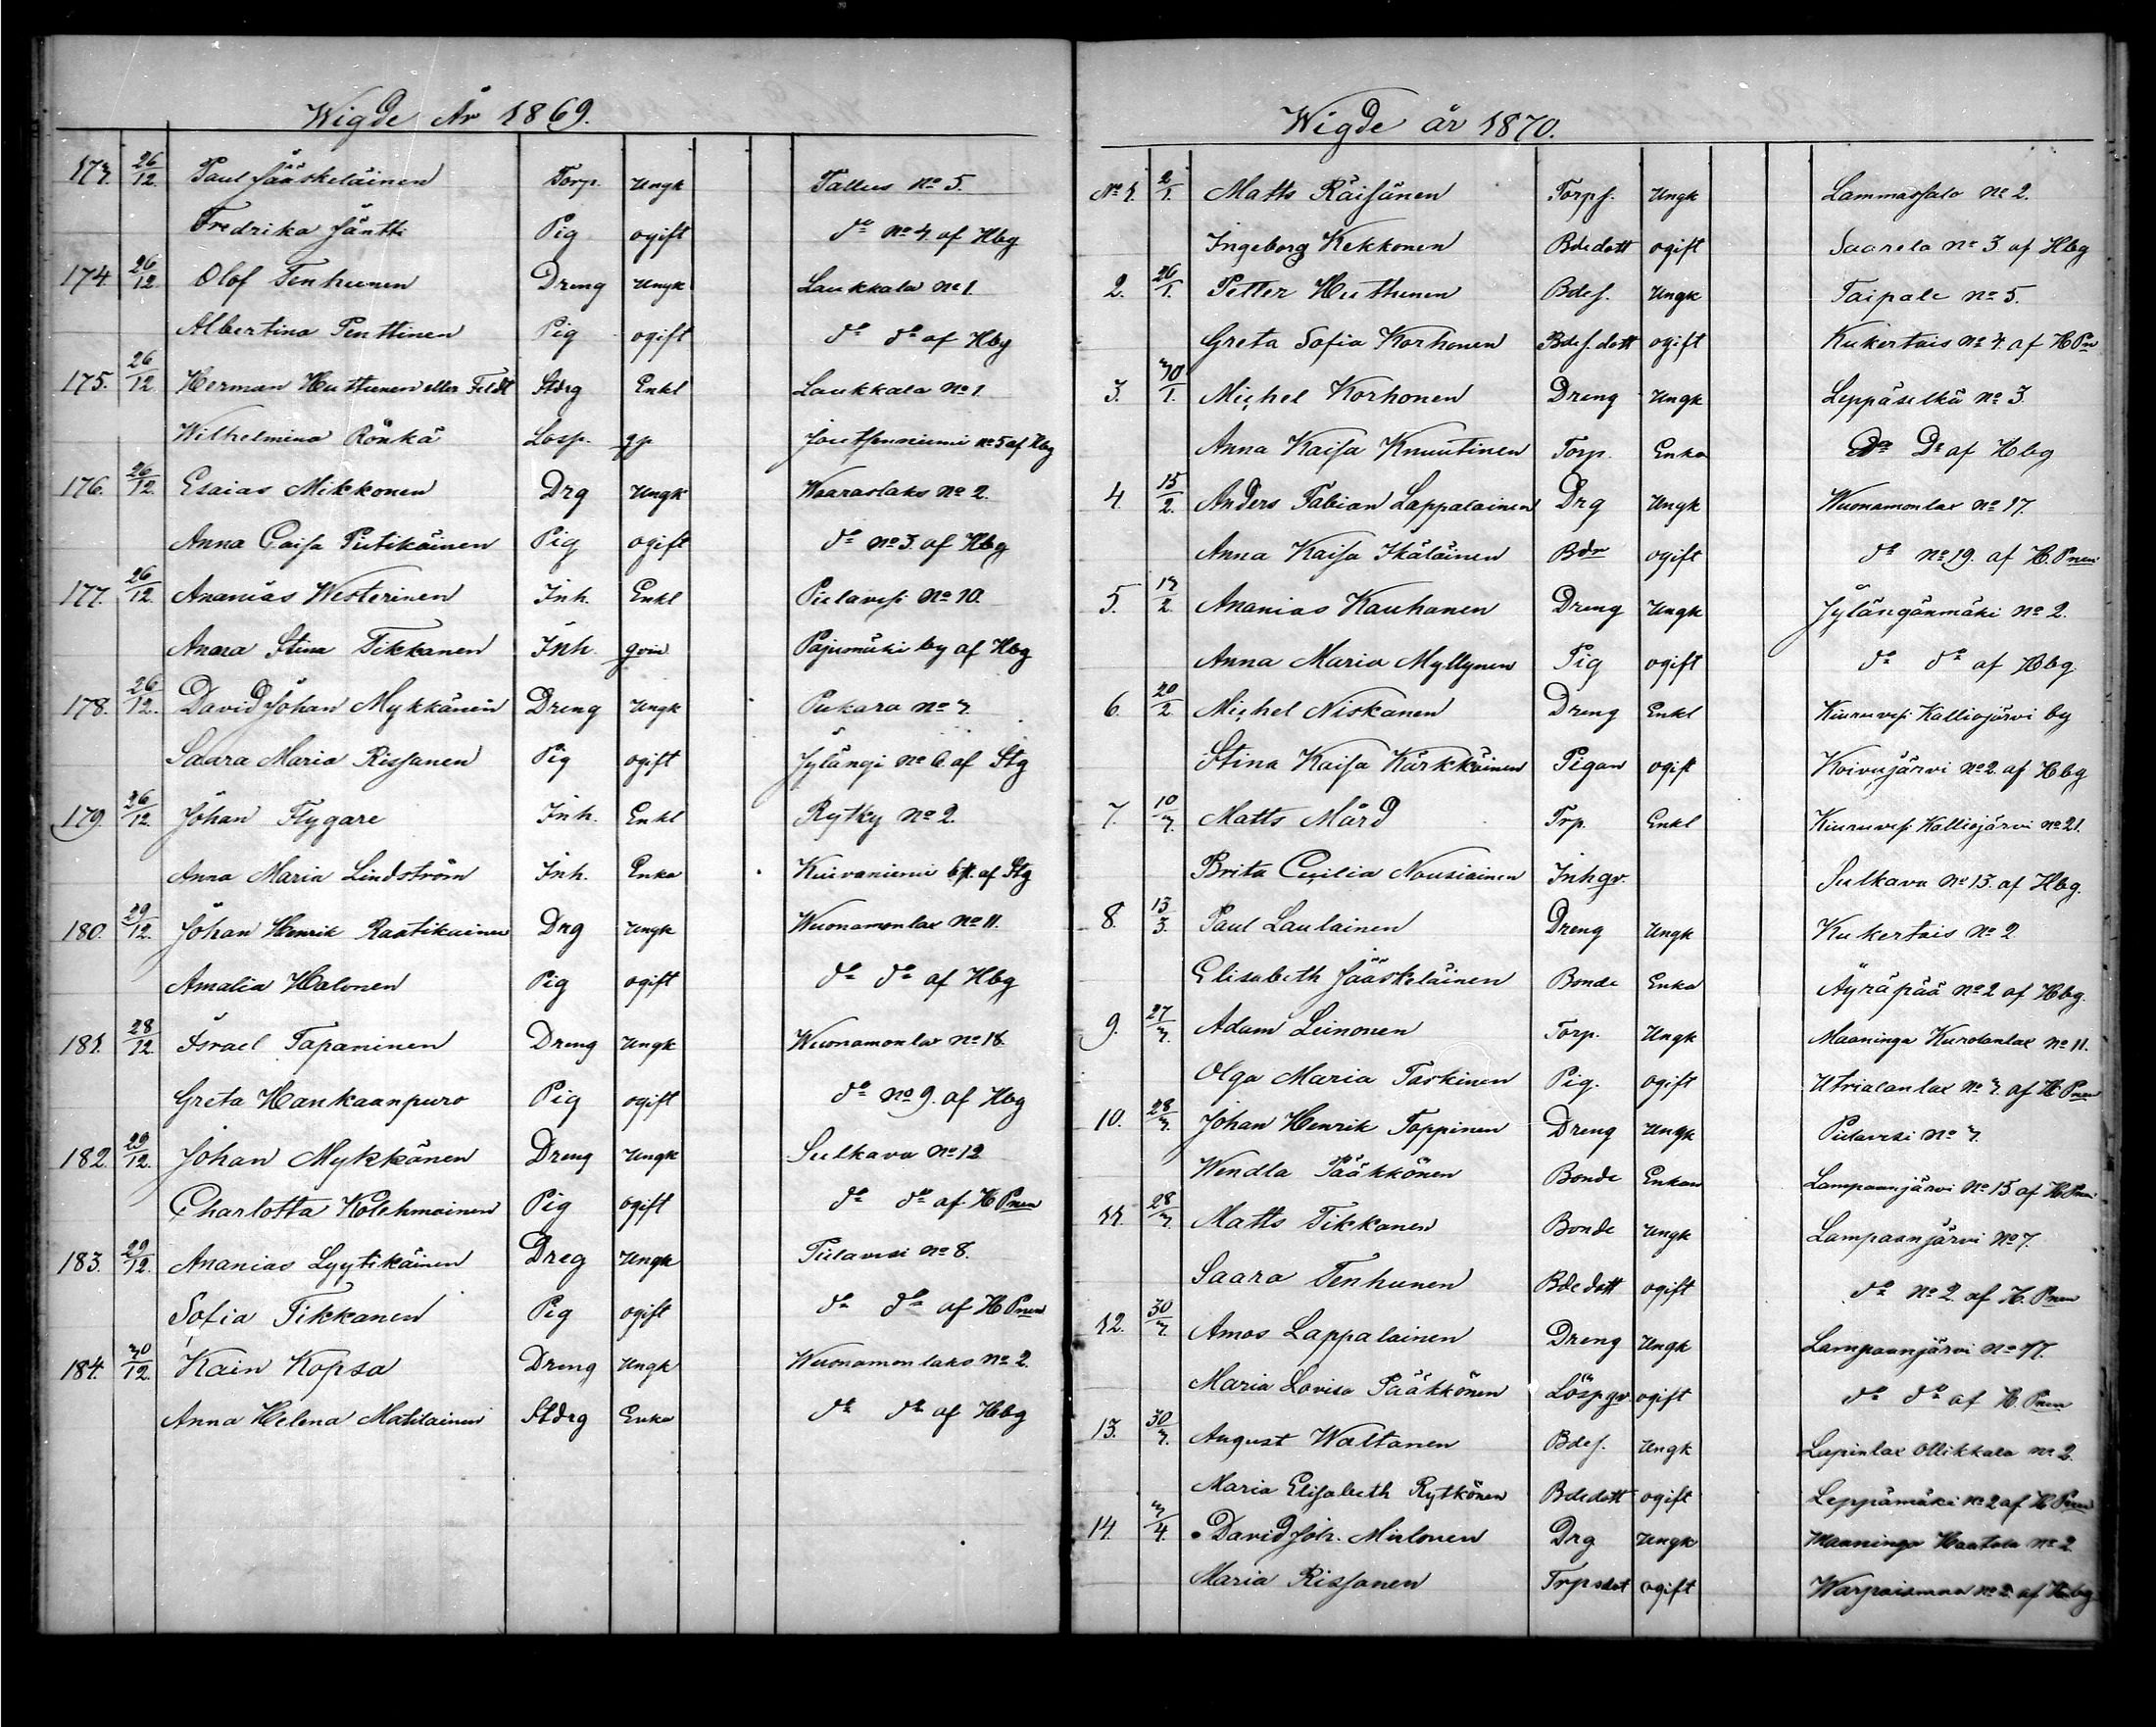 Wigde År 1869.
173. 26/12. Paul Jääskeläinen Torp. Ungk Tallus No 5.
Fredrika Jäntti Pig ogift do No 4. af Hbg
174. 26/12. Olof Tenhunen Dreng Ungk Laukkala No 1.
Albertina Penttinen Pig ogift do do af Hbg
175. 26/12. Herman Huttunen eller Feldt Stdrg Enkl Laukkala No 1.
Wilhelmina Rönkä Losp. gp Joutsenniemi No 5 af Hbg
176. 26/12. Esaias Mikkonen Drg Ungk Waaraslaks No 2.
Anna Caisa Putikäinen Pig ogift do No 3. af Hbg
177. 26/12. Ananias Westerinen Inh. Enkl Pielavesi No 10.
Anna Stina Tikkanen Inh. qvin Pajumäki by af Hbg
178. 26/12. David Johan Mykkänen Dreng Ungk Pukara No 3.
Saara Maria Rissanen Pig ogift Jylängi No 6 af Stg
179. 26/12. Johan Flygare Inh. Enkl Rytky No 2.
Anna Maria Lindström Inh. Enka Kuivaniemi af Stg
180. 29/12. Johan Henrik Raatikainen Drg Ungk Wuonamonlax No 11.
Amalia Halonen Pig ogift do do af Hbg
181. 28/12. Israel Tapaninen Dreng Ungk Wuonamonlax No 18.
Greta Hankaanpuro Pig ogift do No 9. af Hbg
182. 29/12. Johan Mykkänen Dreng Ungk Sulkava No 12
Charlotta Kolehmainen Pig ogift do do af H Pnen
183. 29/12. Ananias Lyytikäinen Dreg Ungk Pielavesi No 8.
Sofia Tikkanen Pig ogift do do af H Pnen
184. 30/12. Kain Kopsa Dreng Ungk Wuonamonlaks No 2.
Anna Helena Matilainen Stdrg Enka do do af Hbg
Wigde år 1870.
No 1. 2/1. Matts Räisänen Torps. Ungk Lammassalo No 2.
Ingeborg Kekkonen Bdedott ogift Saarela No 3 af Hbg
2. 26/1. Petter Huttunen Bdes. Ungk Taipale No 5.
Greta Sofia Korhonen Bdes. dott ogift Kukertais No 4. af H Pn
3. 30/1. Michel Korhonen Dreng Ungk Leppäselkä No 3.
Anna Kaisa Knuutinen Torp. Enka Do Do af Hbg
4. 15/2. Anders Fabian Lappalainen Drg Ungk Wuonamonlax No 17
Anna Kaisa Ikäläinen Bdr ogift do No 19. af H. Pnen
5. 17/2. Ananias Kauhanen Dreng Ungk Jylängänmäki No 2.
Anna Maria Myllynen Pig ogift do do af Hbg.
6. 20/2. Michel Niskanen Dreng Enkl Kiuruvesi Kalliojärvi by
Stina Kaisa Kärkkäinen Pigan ogift Koivujärvi No 2. af Hbg
7. 10/3. Matts Mård Trp. Enkl Kiuruvesi Kalliojärvi No 21.
Brita Cecilia Nousiainen Inhqv. Sulkava No 13. af Hbg.
8. 13/3. Paul Laulainen Dreng Ungk Kukertais No 2
Elisabeth Jääskeläinen Bonde Enka Äyräpää No 2 af Hbg.
9. 27/3. Adam Leinonen Torp. Ungk Maaninga Kurolanlax No 11.
Olga Maria Taskinen Pig. ogift Utrialanlax No 3. af H Pnen
10. 28/3. Johan Henrik Toppinen Dreng Ungk Pielavesi No 3.
Wendla Pääkkönen Bonde Enkan Lampaanjärvi No 15 af H Pnen
11. 28/3. Matts Tikkanen Bonde Ungk Lampaanjärvi No 7.
Saara Tenhunen Bdedott ogift do No 2. af H. Pnen
12. 30/3. Amos Lappalainen Dreng Ungk Lampaanjärvi No 17.
Maria Lovisa Pääkkönen Löspqv ogift do do af H. Pnen
13. 30/3. August Waltanen Bdes. Ungk Lapinlax Ollikkala No 2.
Maria Elisabeth Rytkönen Bdedott ogift Leppämäki No 2 af H Pnen
14. 3/4. David Joh. Mielonen Drg Ungk Maaninga Haatala No 2
Maria Rissanen Trpsdot ogift Warpaismaa No 2. af Hbg